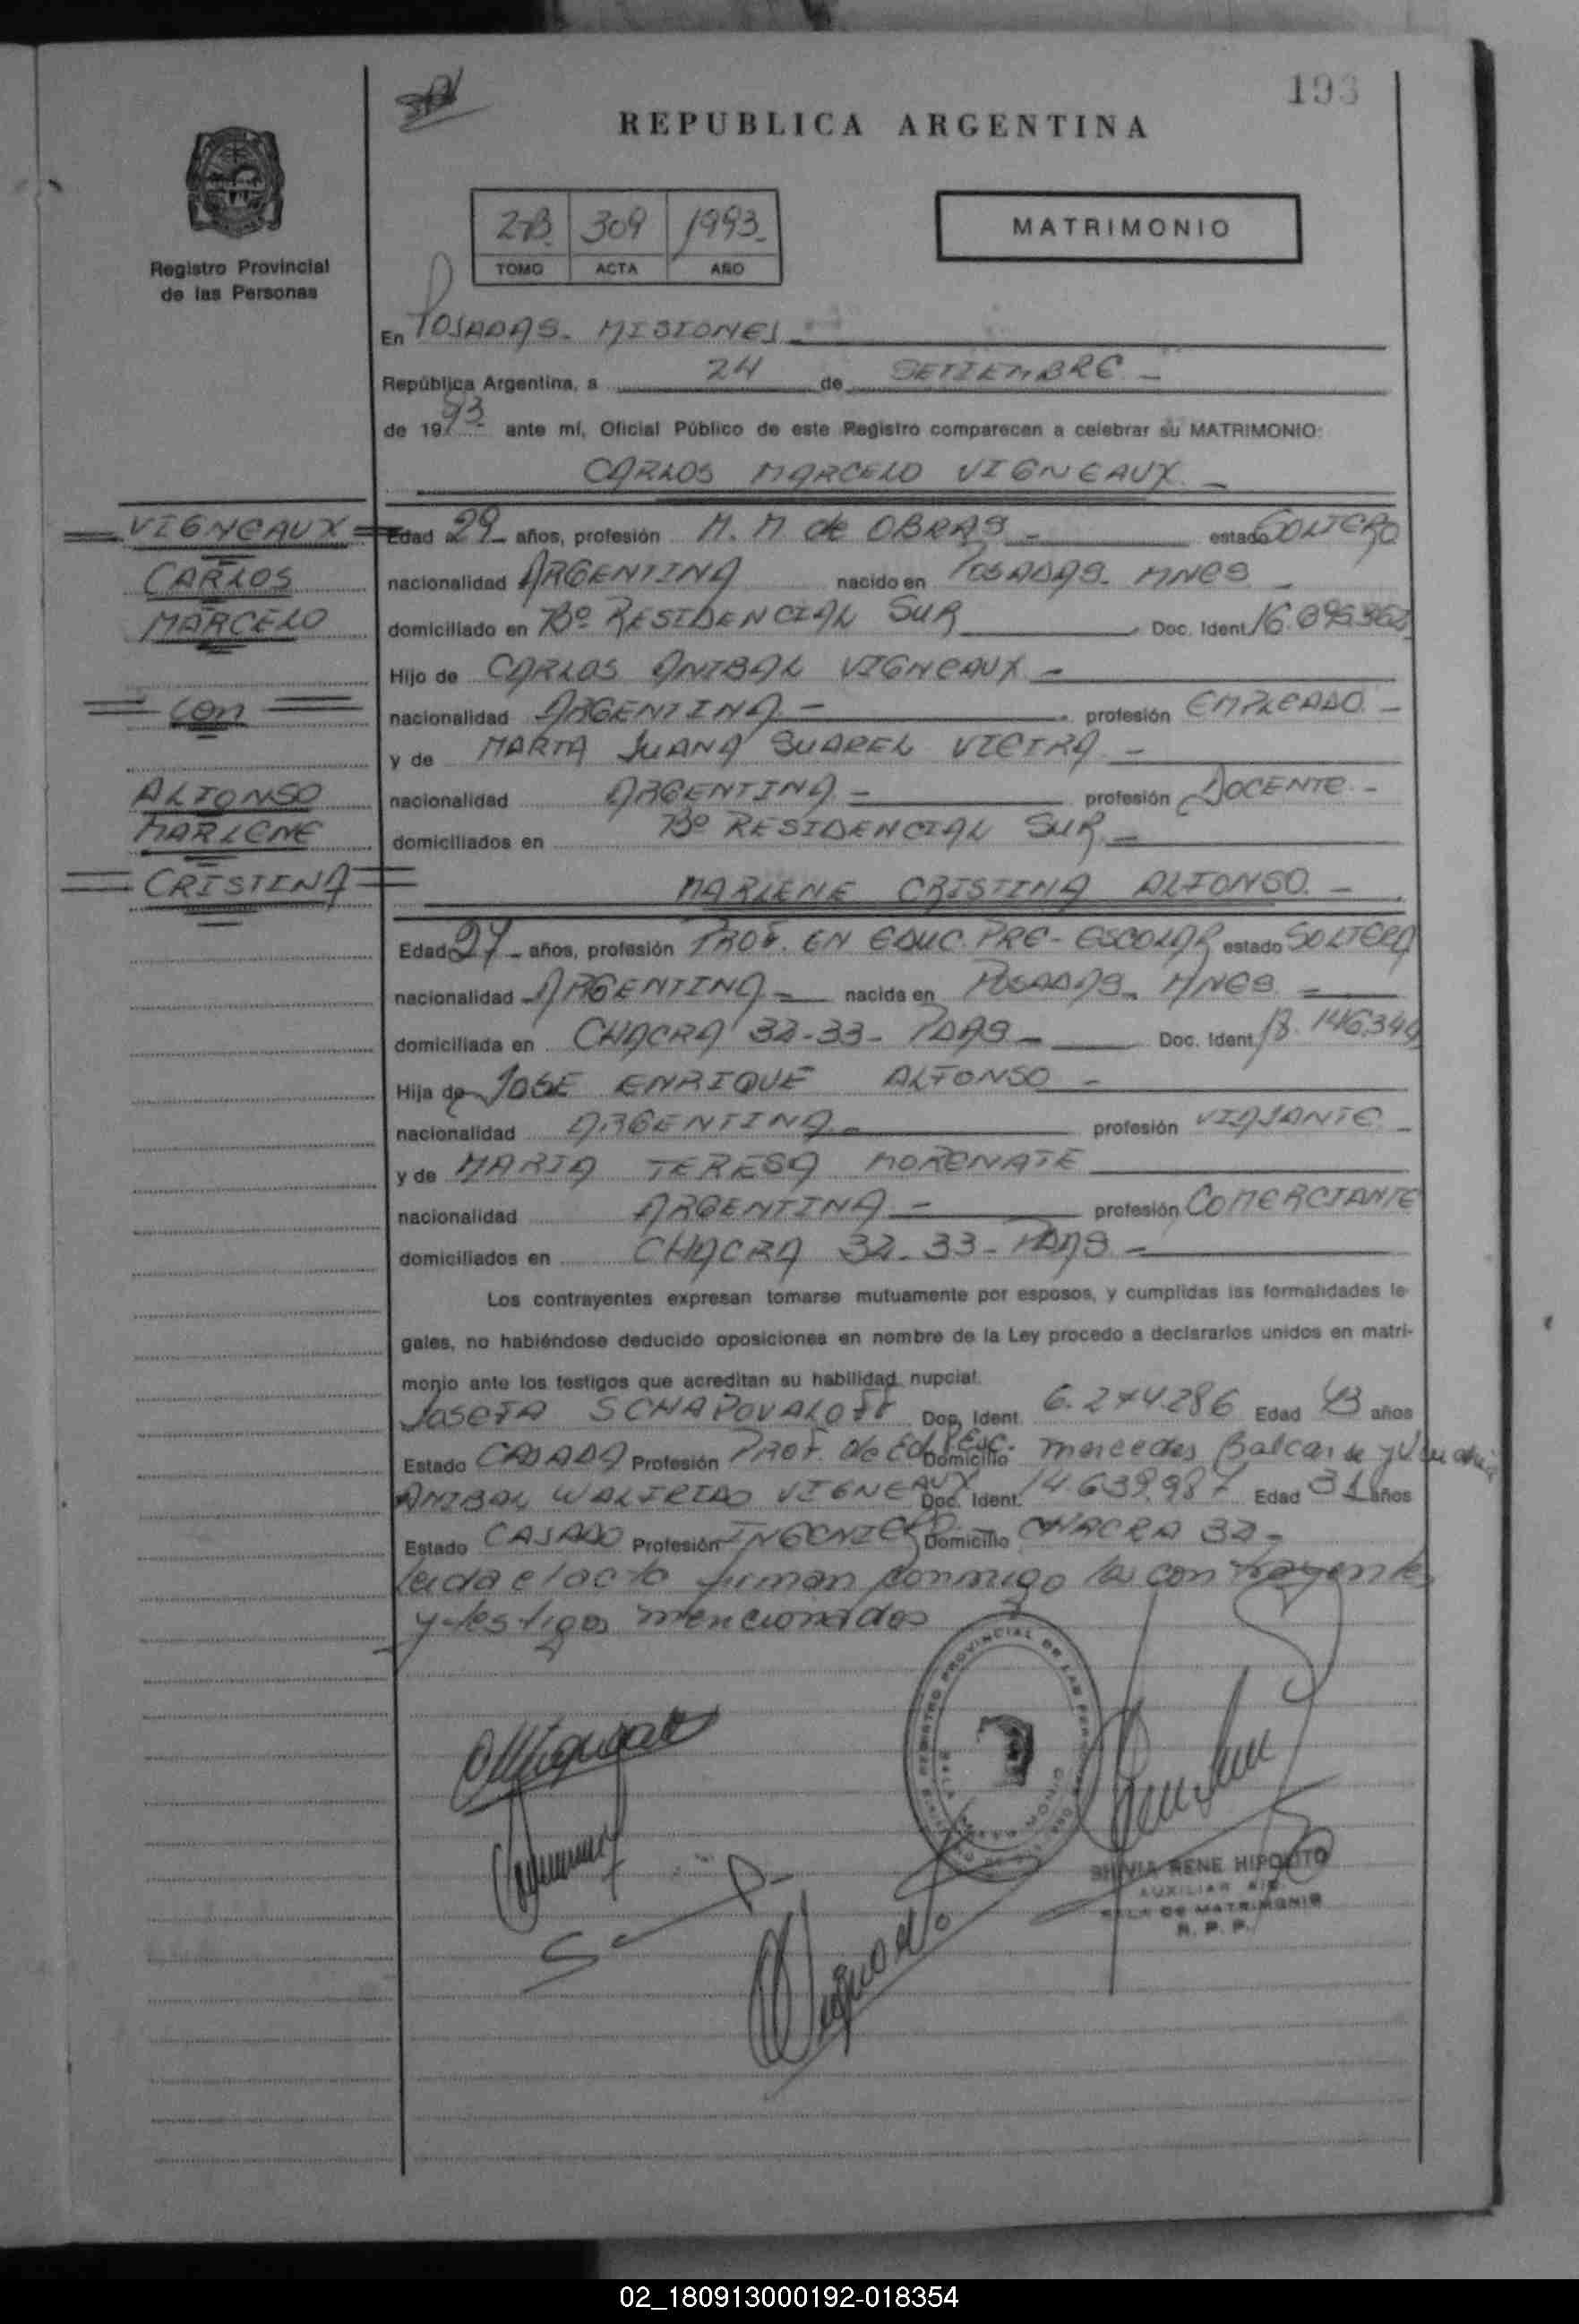 193
REPUBLICA ARGENTINA
Registro Provincial
de las Personas
2-B 309 1993
TOMO ACTA AÑO
MATRIMONIO
En POSADAS - MISIONES
República Argentina, a 24 de SETIEMBRE
de 1993 ante mí, Oficial Público de este Registro comparecen a celebrar su MATRIMONIO:
CARLOS MARCELO VIGNEAUX
VIGNEAUX
CARLOS
MARCELO
con
ALFONSO
MARLENE
CRISTINA
Edad 29 años, profesión M. M de OBRAS estado SOLTERO
nacionalidad ARGENTINA nacido en POSADAS - MNES
domiciliado en Bº RESIDENCIAL SUR Doc. Ident.
Hijo de CARLOS ANIBAL VIGNEAUX
nacionalidad ARGENTINA profesión EMPLEADO
y de MARTA JUANA SUAREZ VIEIRA
nacionalidad ARGENTINA profesión DOCENTE
domiciliados en Bº RESIDENCIAL SUR
MARLENE CRISTINA ALFONSO
Edad 27 años, profesión PROF. EN EDUC. PRE-ESCOLAR estado SOLTERA
nacionalidad ARGENTINA nacida en POSADAS - MNES
domiciliada en CHACRA 32-33- PDAS Doc. Ident. 18.146.349
Hija de JOSE ENRIQUE ALFONSO
nacionalidad ARGENTINA profesión VIAJANTE
y de MARIA TERESA MORENATE
nacionalidad ARGENTINA profesión COMERCIANTE
domiciliados en CHACRA 32-33- PDAS
Los contrayentes expresan tomarse mutuamente por esposos, y cumplidas las formalidades le-
gales, no habiéndose deducido oposiciones en nombre de la Ley procedo a declararlos unidos en matri-
monio ante los testigos que acreditan su habilidad nupcial.
JOSEFA SCHAPOVALOFF Doc. Ident. 6.274.286 Edad 43 años
Estado CASADA Profesión PROF. de Ed. P. Esc. Domicilio Mercedes Balcarce y
ANIBAL WALFRIDO VIGNEAUX Doc. Ident. 14.639.987 Edad 31 años
Estado CASADO Profesión INGENIERO Domicilio CHACRA 32-
Leida el acta firman conmigo los contrayentes
y testigos mencionados
REGISTRO PROVINCIAL DE LAS PERSONAS
SILVIA RENE HIPOLITO
AUXILIAR
SALA DE MATRIMONIO
R. P. P.
02_180913000192-018354